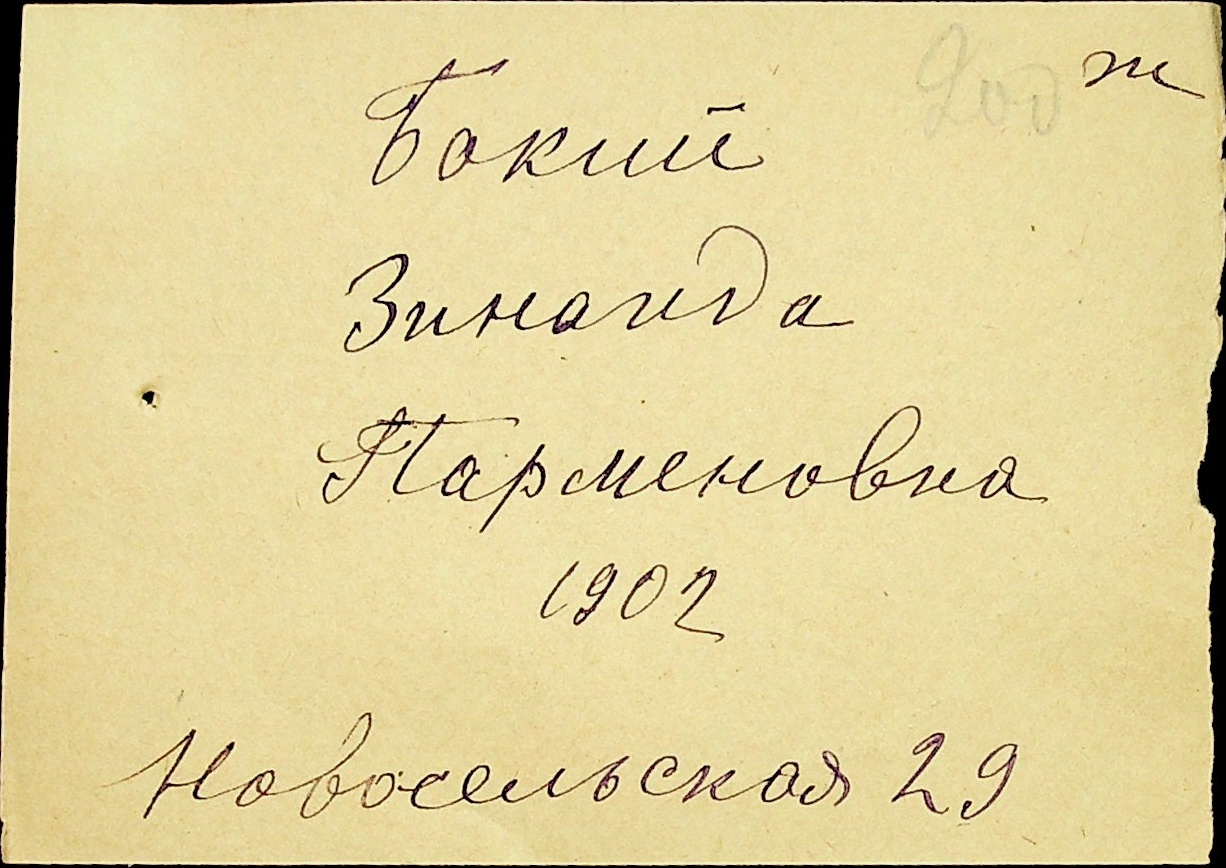 Бокий
Зинаида
Парменовна
1902
Новосельская 29